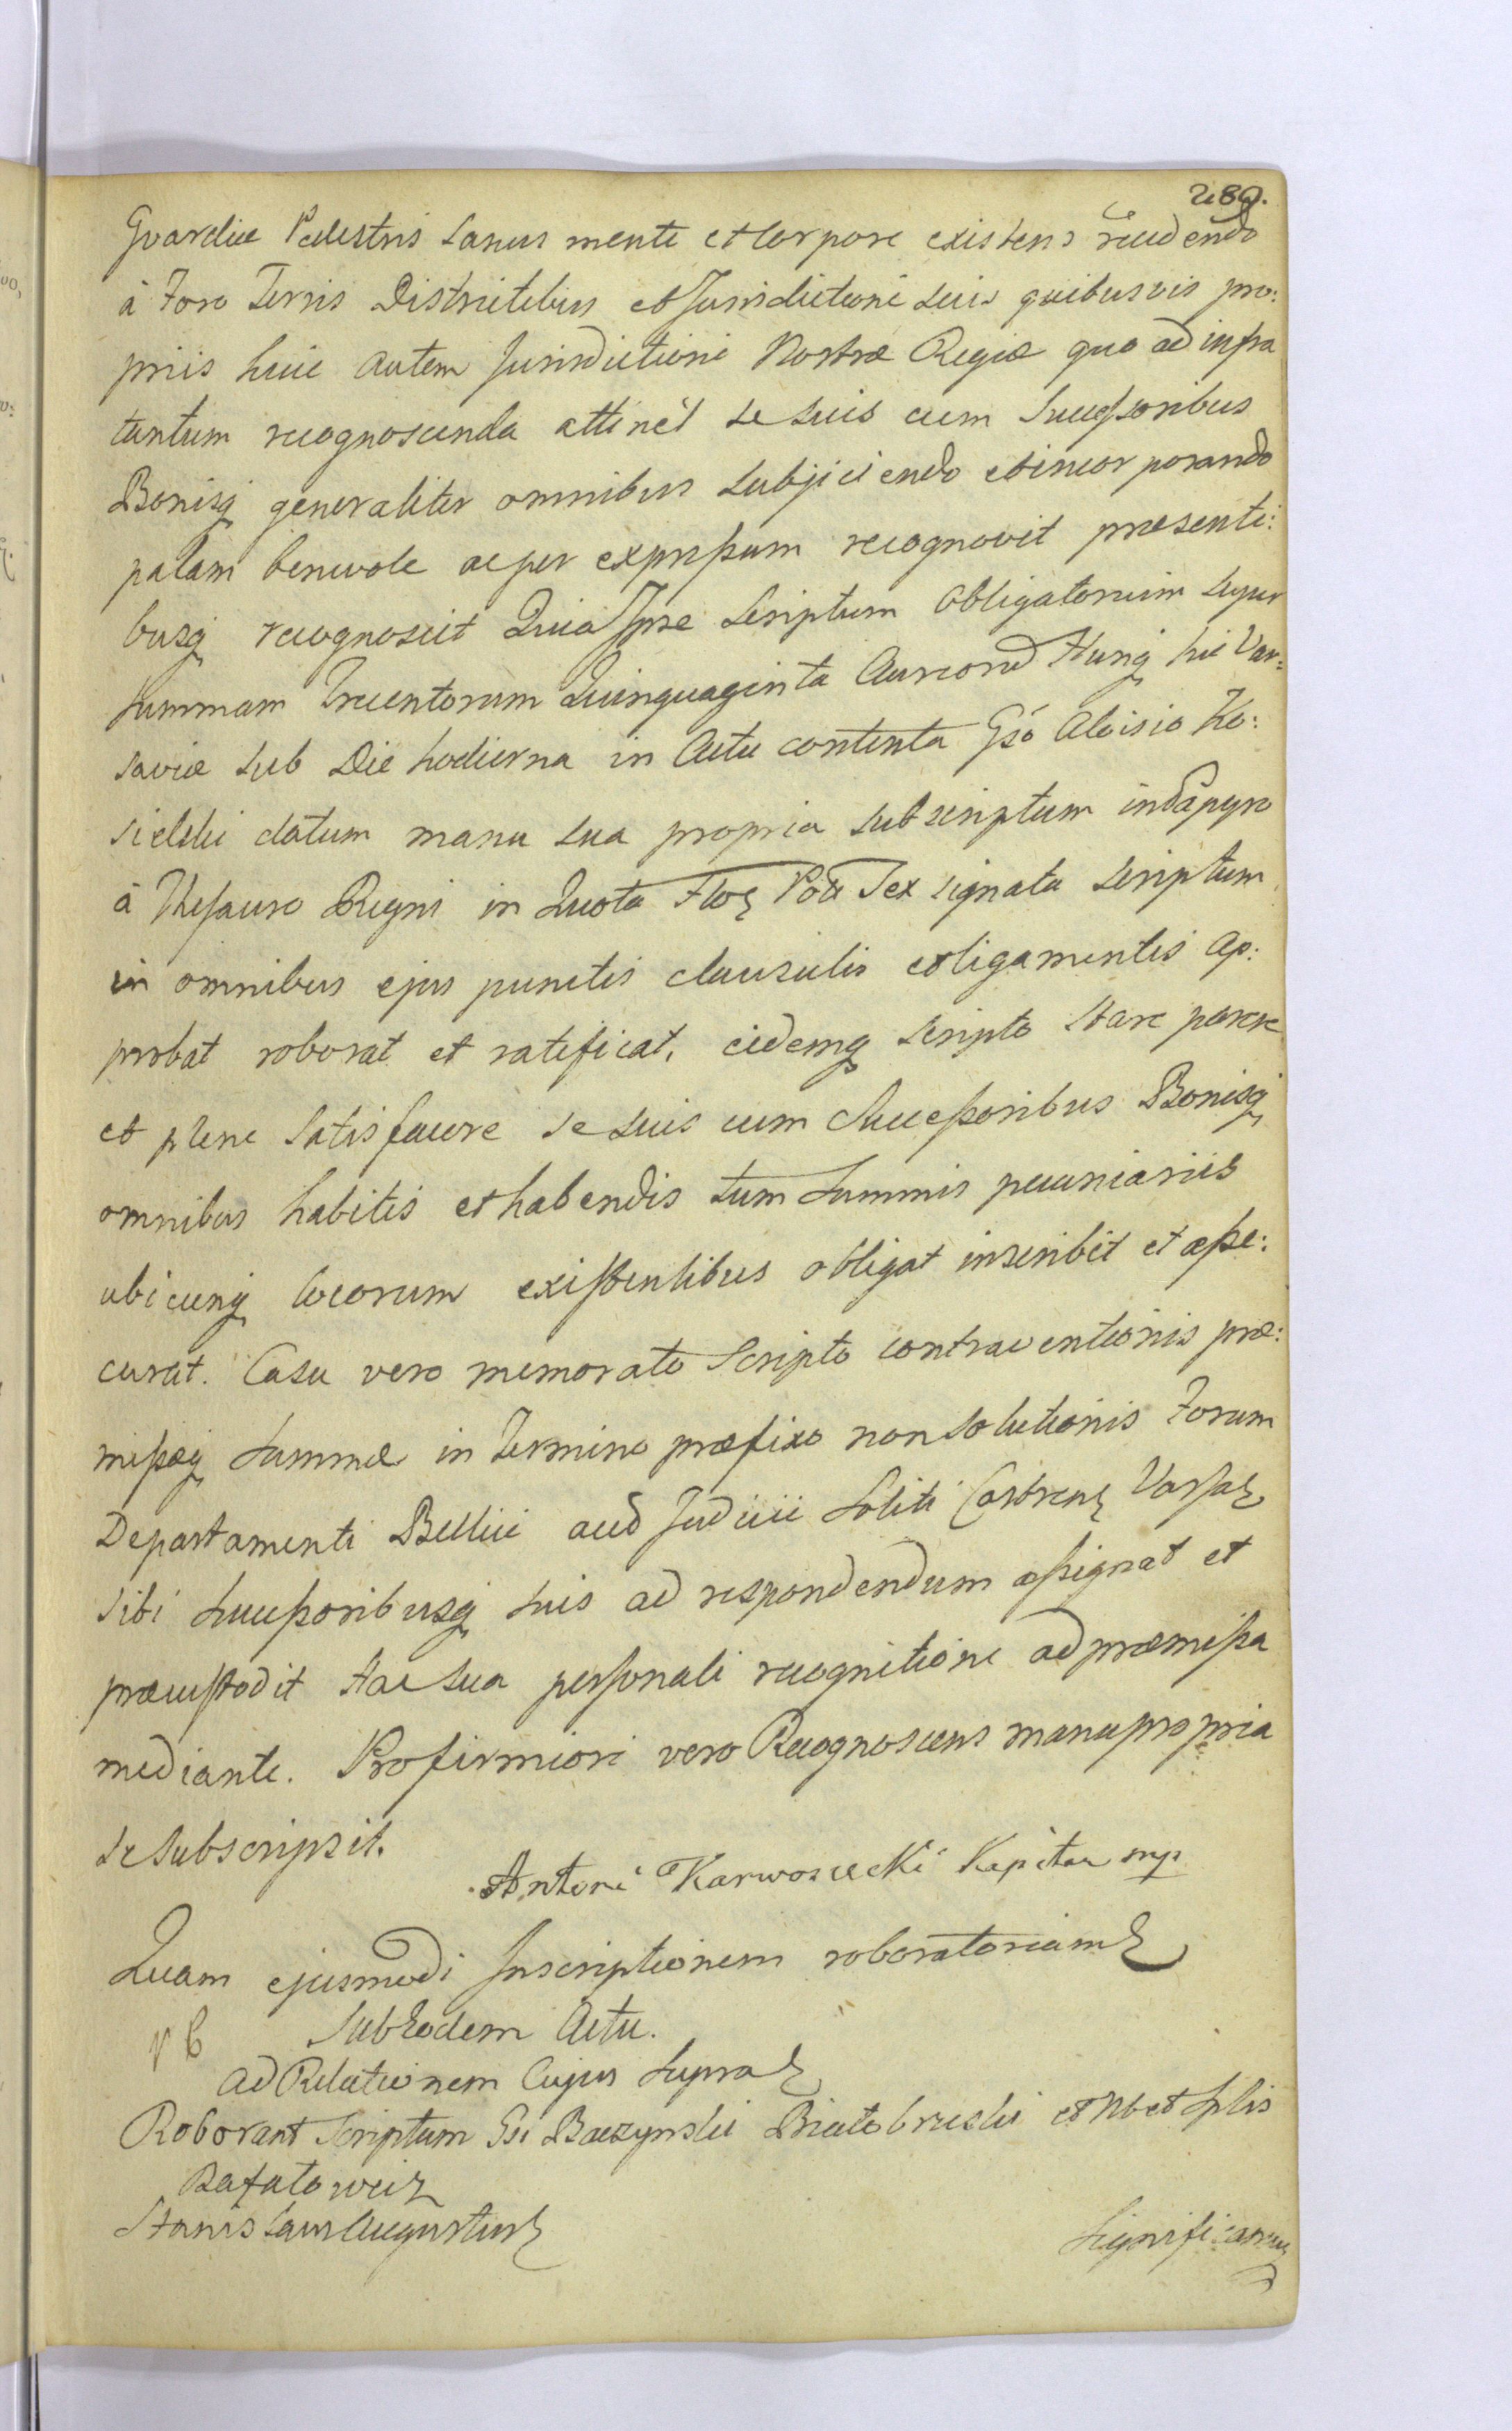 289.
Gvardiæ Pedestris sanus mente et Corpore existens recedendo
à Foro Terris Districtibus et Jurisdictione suis quibusvis pro:
priis huic autem Jurisdictioni Nostræ Regiæ quo ad infra
tantum recognoscenda attinet se suis cum Successoribus
Bonisq generaliter omnibus subjiciendo et incorporando
palam benevole ac per expressum recognovit præsenti:
busq recognoscit Quia Ipse Scriptum Obligatorium super
summam Trecentorum Quinquaginta Aureord Hung hic Var:
saviæ sub Die hodierna in Actu contenta Gso Aloisio Ko:
sielski datum manu sua propria subscriptum in papyro
à Thesauro Regni in Quota Flor Pol Sex signata scriptum
in omnibus ejus punctis clausulis et ligamentis ap:
probat roborat et ratificat, eidemq scripto stare parere
et plene Satisfacere se suis cum Successoribus Bonisq
omnibus habitis et habendis tum Summis pecuniariis
ubicunq locorum existentibus obligat inscribit et asse:
curat. Casu vero memorato Scripto contraventionis præ:
missæq Summæ in Termino præfixo non Solutionis Forum
Departamenti Bellici aud Judicii Soliti Castrens Varsav
sibi Successoribusq suis ad respondendum assignat et
præcustodit Hac sua personali recognitione ad præmissa
mediante. Pro firmiori vero Recognoscens manu propria
se subscripsit.
Antoni Karwosiecki Kapitan mp
Quam ejusmodi Inscriptionem roboratoriam
Sub Eodem Actu.
Ad Relationem Cujus Supra
Roborant Scriptum Gsi Baczynski Białobrzeski et Nbet Splis
Rafałowicz
Stanislaus Augustus
Significamus